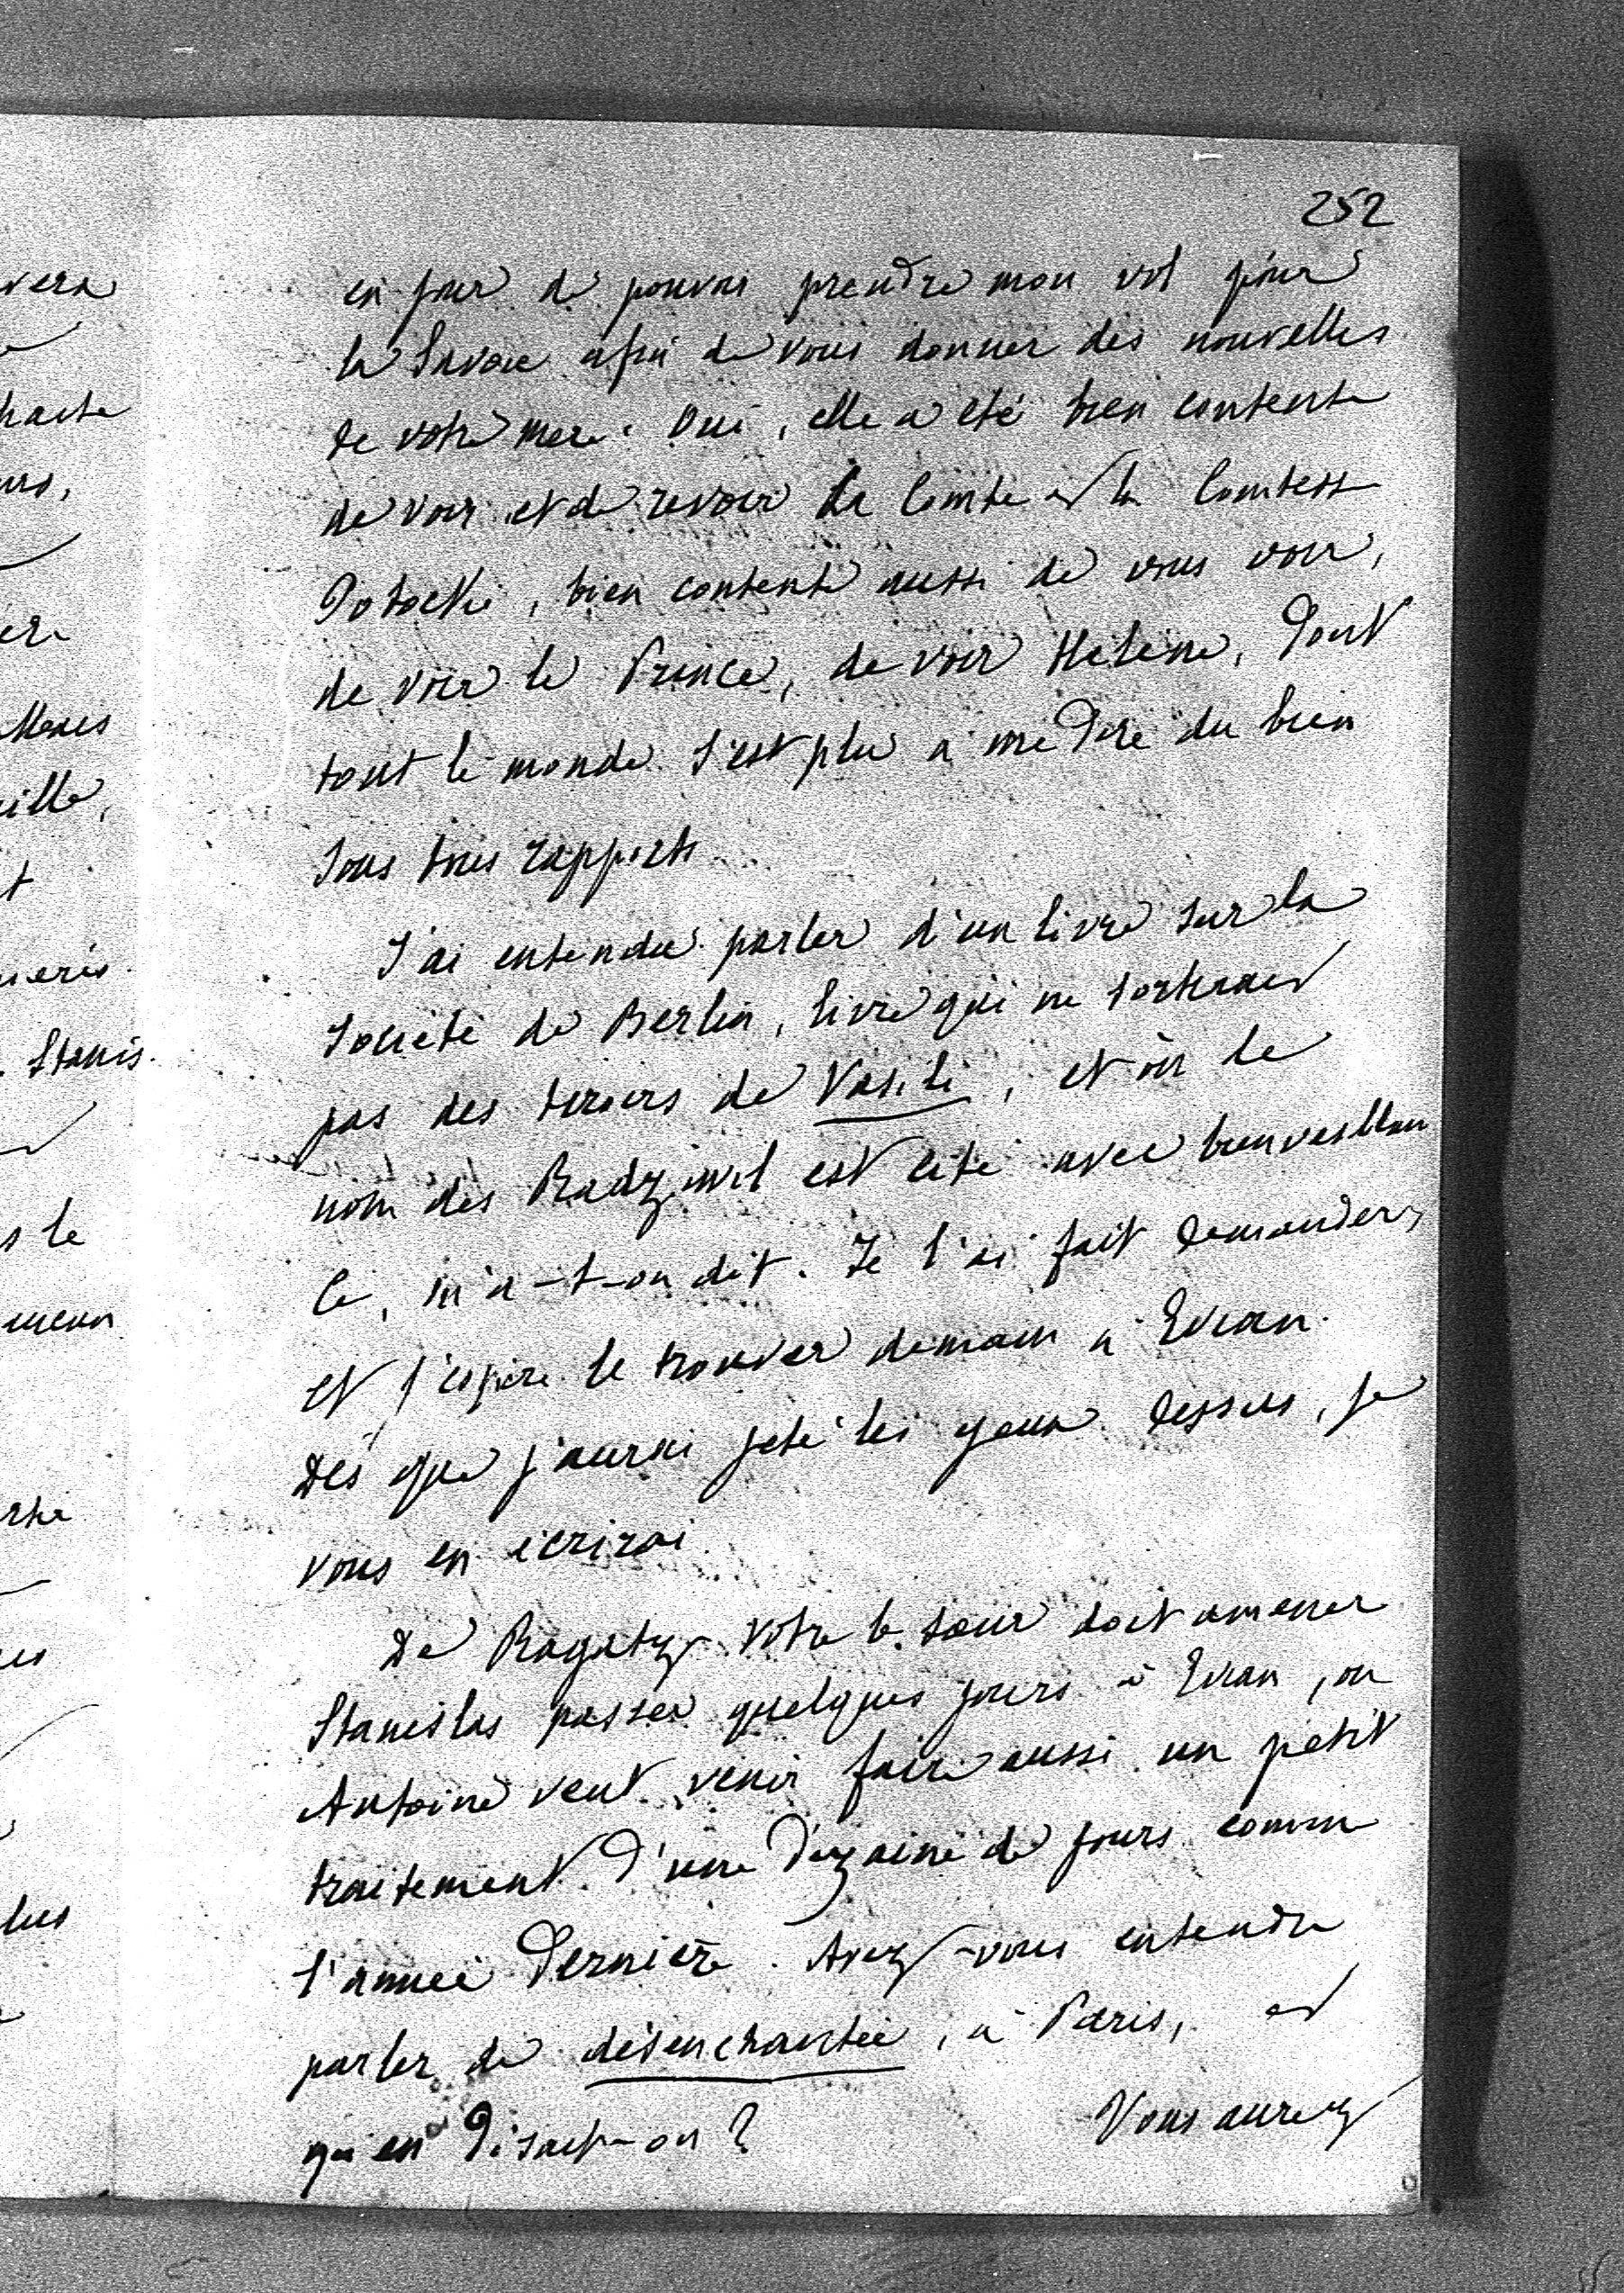 252
en jour de pouvoir prendre mon vol pour
la Savoie afin de vous donner des nouvelles
de votre mère. Oui, elle a été bien contente
de voir et de revoir le Comte et la Comtesse
Potocki, bien contente aussi de vous voir,
de voir le Prince, de voir Hélène, dont
tout le monde s'est plu à me dire du bien
sous tous rapports.
J'ai entendu parler d'un livre sur la
société de Berlin, livre qui ne sortirait
pas des tiroirs de Vasili, et où le
nom des Radziwil est cité avec bienveillan
ce, m'a-t-on dit. Je l'ai fait demander,
et j'espère le trouver demain à Evian.
Dès que j'aurai jeté les yeux dessus, je
vous en écrirai.
De Ragatz votre b. sœur doit amener
Stanislas passer quelques jours à Evian, où
Antoine veut venir faire aussi un petit
traitement d'une dizaine de jours comme
l'année dernière. Avez-vous entendu
parler de désenchantée, à Paris, et
qu'en disait-on ? Vous aurez
vera
ille,
Stanis
s le